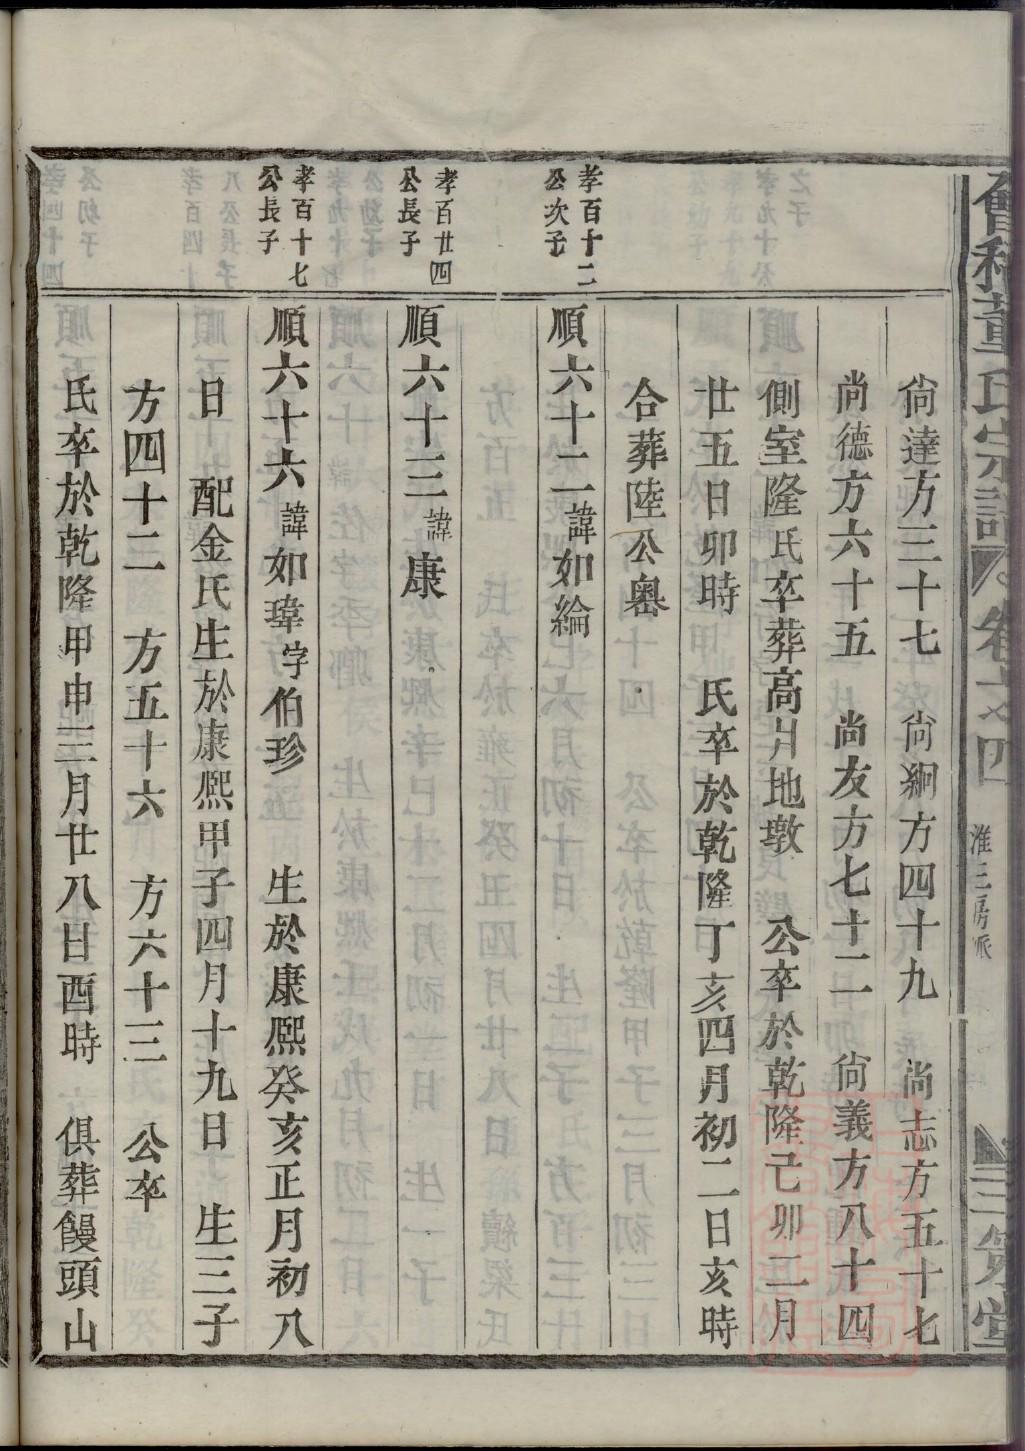 會稽董氏宗譜 卷之四 淮三房派 三策堂
尚達方三十七 尚絅方四十九 尚志方五十七
尚德方六十五 尚友方七十二 尚義方八十四
側室隆氏卒葬高爿地墩 公卒於乾隆己卯二月
廿五日卯時 氏卒於乾隆丁亥四月初二日亥時
合葬陸公嶴
孝百十二
公次子
順六十二諱如綸
孝百廿四
公長子
順六十三諱康
孝百十七
公長子
順六十六諱如瑋字伯珍 生於康熙癸亥正月初八
日 配金氏生於康熙甲子四月十九日 生三子
方四十二 方五十六 方六十三 公卒
氏卒於乾隆甲申三月廿八日酉時 俱葬饅頭山